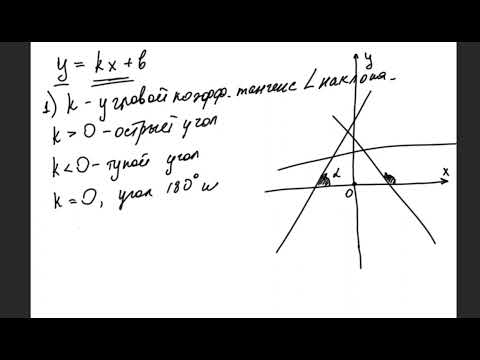 y = kx + b
1) k - угловой коэфф. тангенс ∠ наклона.
k > 0 - острый угол
k < 0 - тупой угол
k = 0, угол 180° и
y
x
0
α